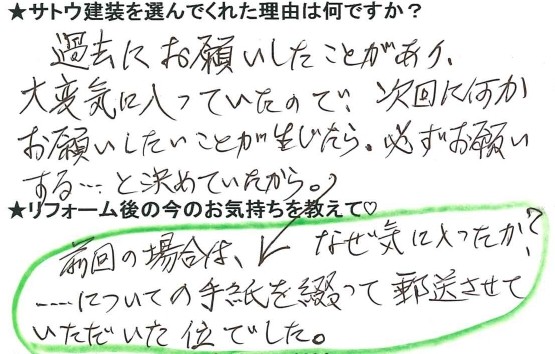 ★サトウ建装を選んでくれた理由は何ですか？
過去にお願いしたことがあり、
大変気に入っていたので、次回に何か
お願いしたいことが生じたら、必ずお願い
する…と決めていたから。
★リフォーム後の今のお気持ちを教えて♡
前回の場合は、なぜ気に入ったか？
……についての手紙を綴って郵送させて
いただいた位でした。